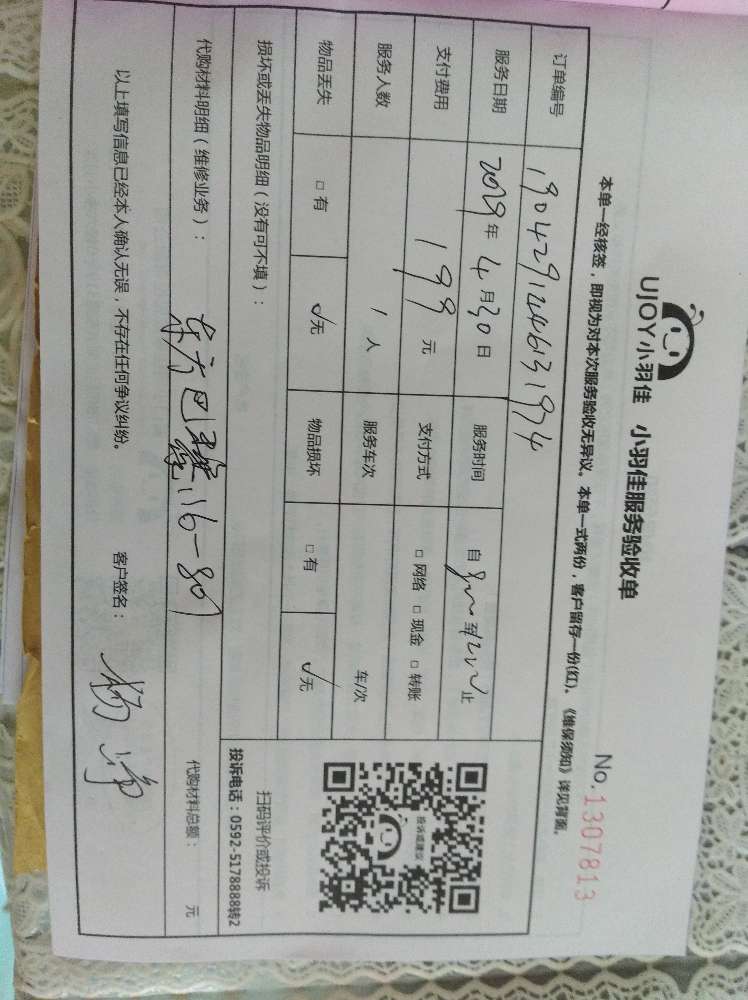 UJOY小羽佳 小羽佳服务验收单
No.1307813
本单一经核签，即视为对本次服务验收无异议。本单一式两份，客户留存一份(红)。《维保须知》详见背面。
订单编号 19042912446131974
服务日期 2019年4月30日 服务时间 自 至 止
支付费用 199元 支付方式 □网络 □现金 □转账
服务人数 1人 服务车次 车/次
物品丢失 □有 √无 物品损坏 □有 √无
损坏或丢失物品明细（没有可不填）：
投诉或建议
扫码评价或投诉
投诉电话：0592-5178888转2
代购材料明细（维修业务）： 东方巴黎 116-807 代购材料总额： 元
以上填写信息已经本人确认无误，不存在任何争议纠纷。 客户签名： 杨